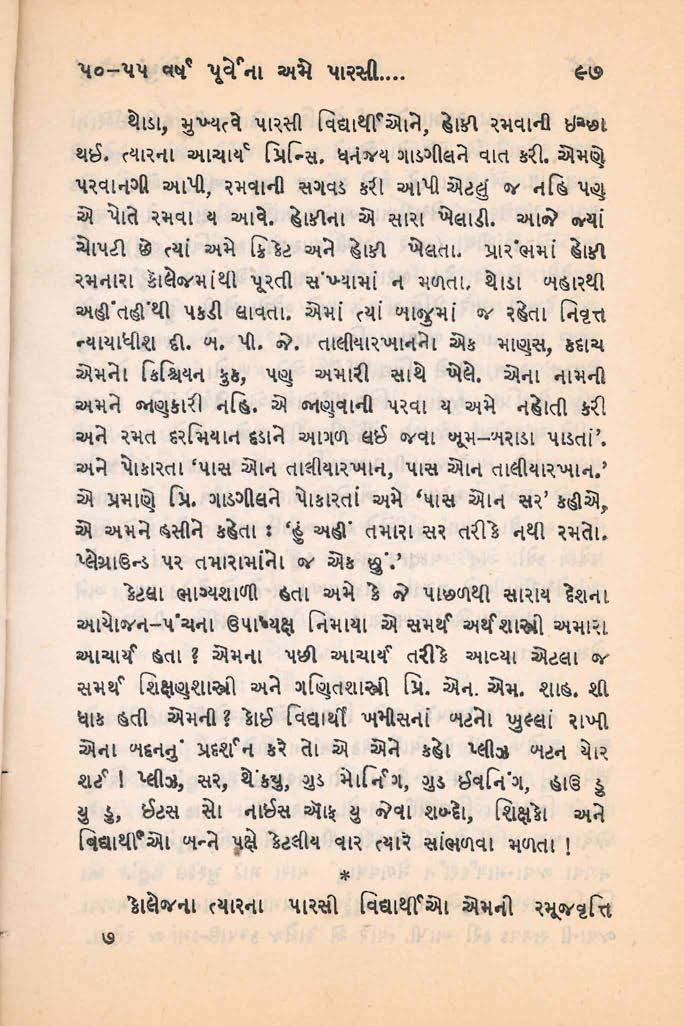 ૫૦–૫૫ વર્ષ પૂર્વેના અમે પારસી.... ૯૭
થોડા, મુખ્યત્વે પારસી વિદ્યાર્થીઓને, હોકી રમવાની ઇચ્છા
થઈ. ત્યારના આચાર્ય પ્રિન્સિ. ધનંજય ગાડગીલને વાત કરી. એમણે
પરવાનગી આપી, રમવાની સગવડ કરી આપી એટલું જ નહિ પણ
એ પોતે રમવા ય આવે. હોકીના એ સારા ખેલાડી. આજે જ્યાં
ચોપટી છે ત્યાં અમે ક્રિકેટ અને હોકી ખેલતા. પ્રારંભમાં હોકી
રમનારા કૉલેજમાંથી પૂરતી સંખ્યામાં ન મળતા. થોડા બહારથી
અહીંતહીંથી પકડી લાવતા. એમાં ત્યાં બાજુમાં જ રહેતા નિવૃત્ત
ન્યાયાધીશ દી. બ. પી. જે. તાલીયારખાનનો એક માણસ, કદાચ
એમનો કિશ્ચિયન કુક, પણ અમારી સાથે ખેલે. એના નામની
અમને જાણકારી નહિ. એ જાણવાની પરવા ય અમે નહોતી કરી
અને રમત દરમિયાન દડાને આગળ લઈ જવા બૂમ–બરાડા પાડતાં'.
અને પોકારતા ‘પાસ ઓન તાલીયારખાન, પાસ ઓન તાલીયારખાન.’
એ પ્રમાણે પ્રિ. ગાડગીલને પોકારતાં અમે ‘પાસ ઓન સર’ કહીએ,
એ અમને હસીને કહેતા : ‘હું અહીં તમારા સર તરીકે નથી રમતો.
પ્લેગ્રાઉન્ડ પર તમારામાંનો જ એક છું.’
કેટલા ભાગ્યશાળી હતા અમે કે જે પાછળથી સારાય દેશના
આયોજન–પંચના ઉપાધ્યક્ષ નિમાયા એ સમર્થ અર્થશાસ્ત્રી અમારા
આચાર્ય હતા ? એમના પછી આચાર્ય તરીકે આવ્યા એટલા જ
સમર્થ શિક્ષણશાસ્ત્રી અને ગણિતશાસ્ત્રી પ્રિ. એન. એમ. શાહ. શી
ધાક હતી એમની ? કોઈ વિદ્યાર્થી ખમીસનાં બટનો ખુલ્લાં રાખી
એના બદનનું પ્રદર્શન કરે તો એ એને કહો પ્લીઝ બટન યોર
શર્ટ ! પ્લીઝ, સર, થેંક્યુ, ગુડ મોર્નિંગ, ગુડ ઈવનિંગ, હાઉ ડુ
યુ ડુ, ઈટસ સો નાઈસ ઑફ યુ જેવા શબ્દો, શિક્ષકો અને
વિદ્યાર્થીઓ બન્ને પક્ષે કેટલીય વાર ત્યારે સાંભળવા મળતા !
*
કૉલેજના ત્યારના પારસી વિદ્યાર્થીઓ એમની રમૂજવૃત્તિ
૭